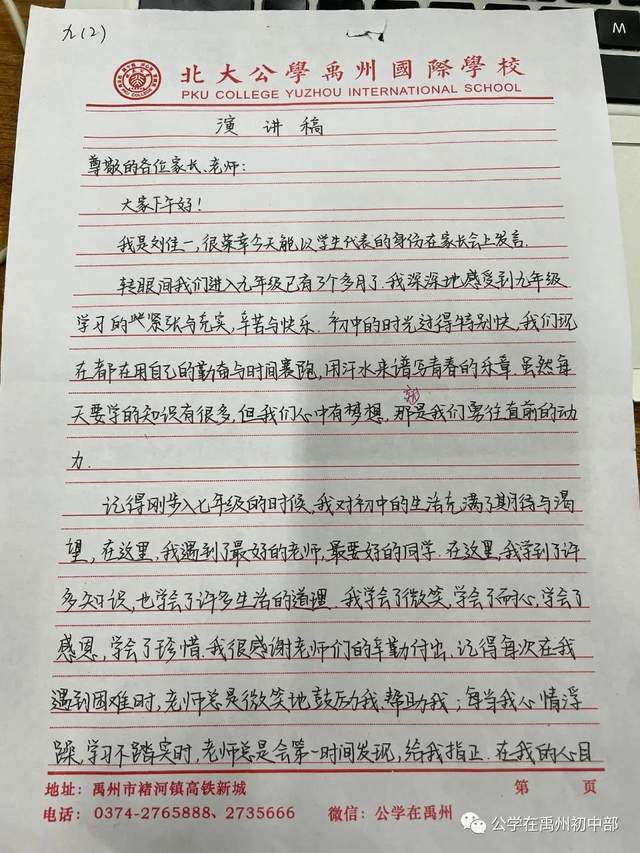 九(2)
北大公學禹州國際學校
PKU COLLEGE YUZHOU INTERNATIONAL SCHOOL
演讲稿
尊敬的各位家长、老师:
大家下午好!
我是刘佳一,很荣幸今天能以学生代表的身份在家长会上发言.
转眼间我们进入九年级已有3个多月了.我深深地感受到九年级
学习的紧张与充实,辛苦与快乐.初中的时光过得特别快,我们现
在都在用自己的勤奋与时间赛跑,用汗水来谱写青春的乐章.虽然每
天要学的知识有很多,但我们心中有梦想,那就是我们勇往直前的动
力.
记得刚步入七年级的时候,我对初中的生活充满了期待与渴
望,在这里,我遇到了最好的老师,最要好的同学.在这里,我学到了许
多知识,也学会了许多生活的道理.我学会了微笑,学会了耐心,学会了
感恩,学会了珍惜.我很感谢老师们的辛勤付出.记得每次在我
遇到困难时,老师总是微笑地鼓励我.帮助我;每当我心情浮
躁,学习不踏实时,老师总是会第一时间发现,给我指正.在我的心目
地址:禹州市褚河镇高铁新城 第 页
电话:0374-2765888、2735666 微信:公学在禹州
公学在禹州初中部
W